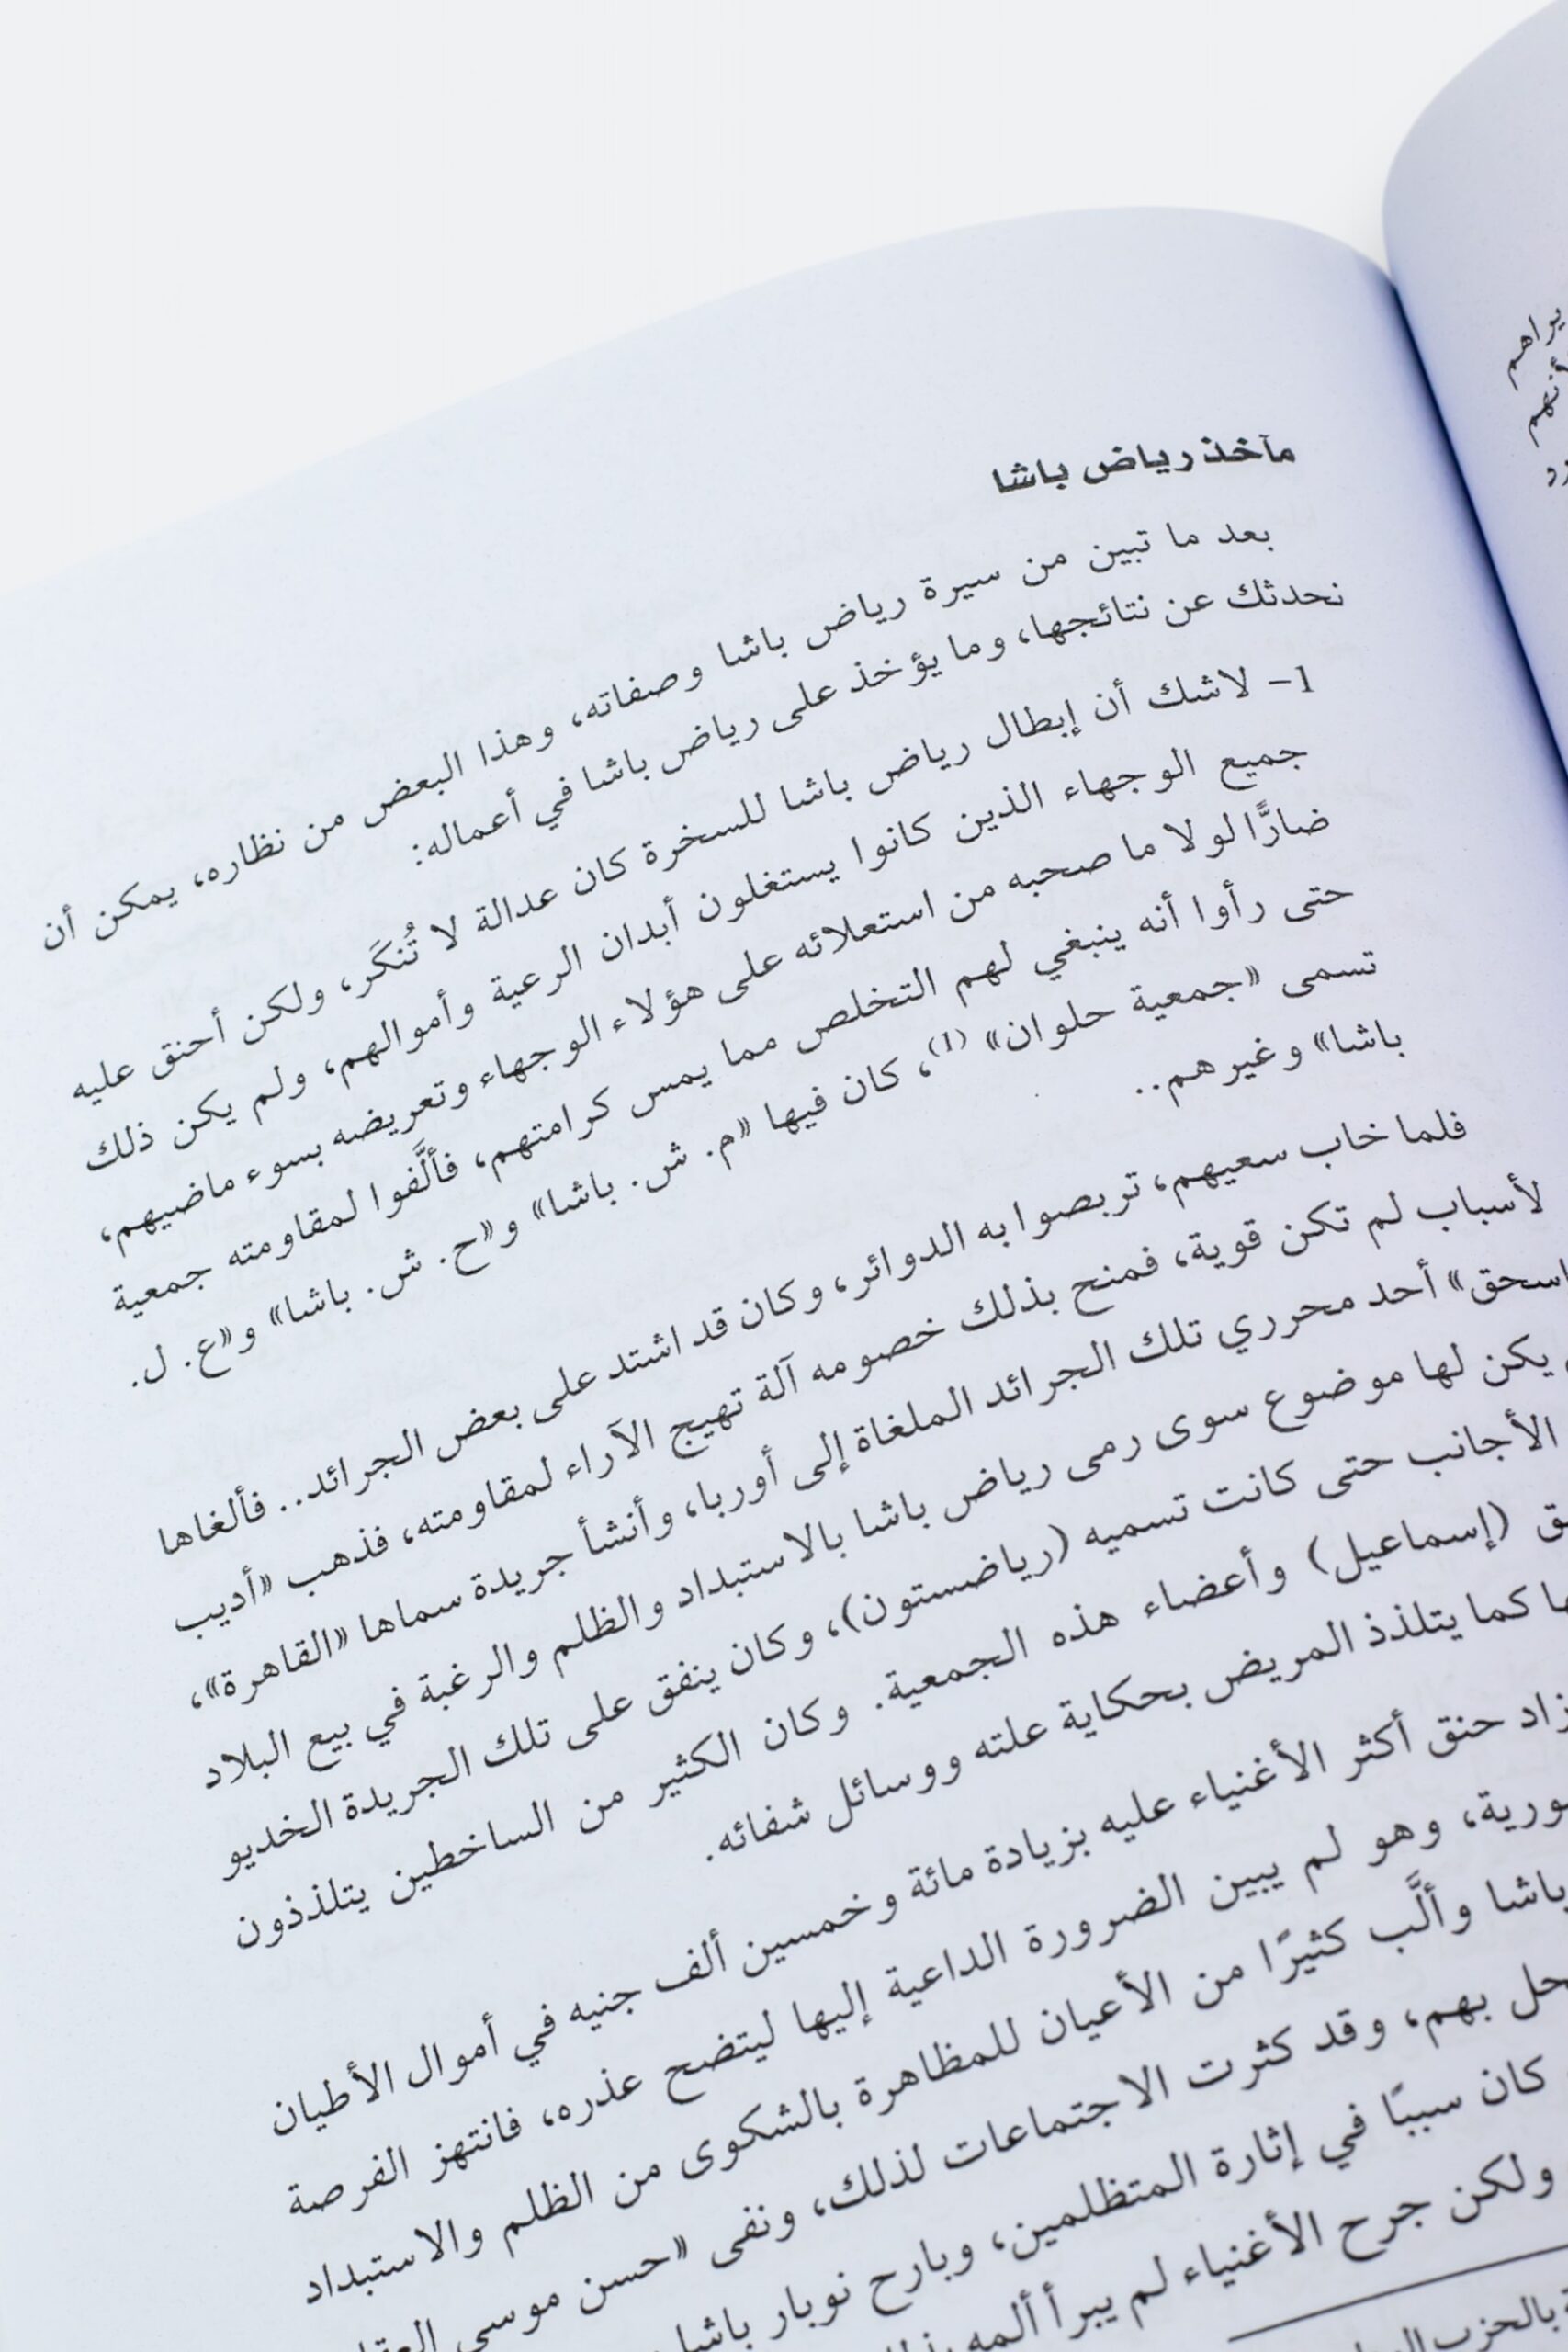 مآخذ رياض باشا
بعد ما تبين من سيرة رياض باشا وصفاته، وهذا البعض من نظاره، يمكن أن
نحدثك عن نتائجها، وما يؤخذ على رياض باشا في أعماله:
1- لاشك أن إبطال رياض باشا للسخرة كان عدالة لا تُنكَر، ولكن أحنق عليه
جميع الوجهاء الذين كانوا يستغلون أبدان الرعية وأموالهم، ولم يكن ذلك
ضارًّا لولا ما صحبه من استعلائه على هؤلاء الوجهاء وتعريضه بسوء ماضيهم،
حتى رأوا أنه ينبغي لهم التخلص مما يمس كرامتهم، فألَّفوا لمقاومته جمعية
تسمى «جمعية حلوان» (1)، كان فيها «م. ش. باشا» و«ح. ش. باشا» و«ع. ل.
باشا» وغيرهم..
فلما خاب سعيهم، تربصوا به الدوائر، وكان قد اشتد على بعض الجرائد.. فألغاها
لأسباب لم تكن قوية، فمنح بذلك خصومه آلة تهيج الآراء لمقاومته، فذهب «أديب
اسحق» أحد محرري تلك الجرائد الملغاة إلى أوربا، وأنشأ جريدة سماها «القاهرة»،
يكن لها موضوع سوى رمى رياض باشا بالاستبداد والظلم والرغبة في بيع البلاد
الأجانب حتى كانت تسميه (رياضستون)، وكان ينفق على تلك الجريدة الخديو
(إسماعيل) وأعضاء هذه الجمعية. وكان الكثير من الساخطين يتلذذون
كما يتلذذ المريض بحكاية علته ووسائل شفائه.
زاد حنق أكثر الأغنياء عليه بزيادة مائة وخمسين ألف جنيه في أموال الأطيان
وهو لم يبين الضرورة الداعية إليها ليتضح عذره، فانتهز الفرصة
باشا وألَّب كثيرًا من الأعيان للمظاهرة بالشكوى من الظلم والاستبداد
حل بهم، وقد كثرت الاجتماعات لذلك، ونفى «حسن موسى
كان سببًا في إثارة المتظلمين، وبارح نوبار باشا
ولكن جرح الأغنياء لم يبرأ ألمه
بالحزب
يراهم
أنهم